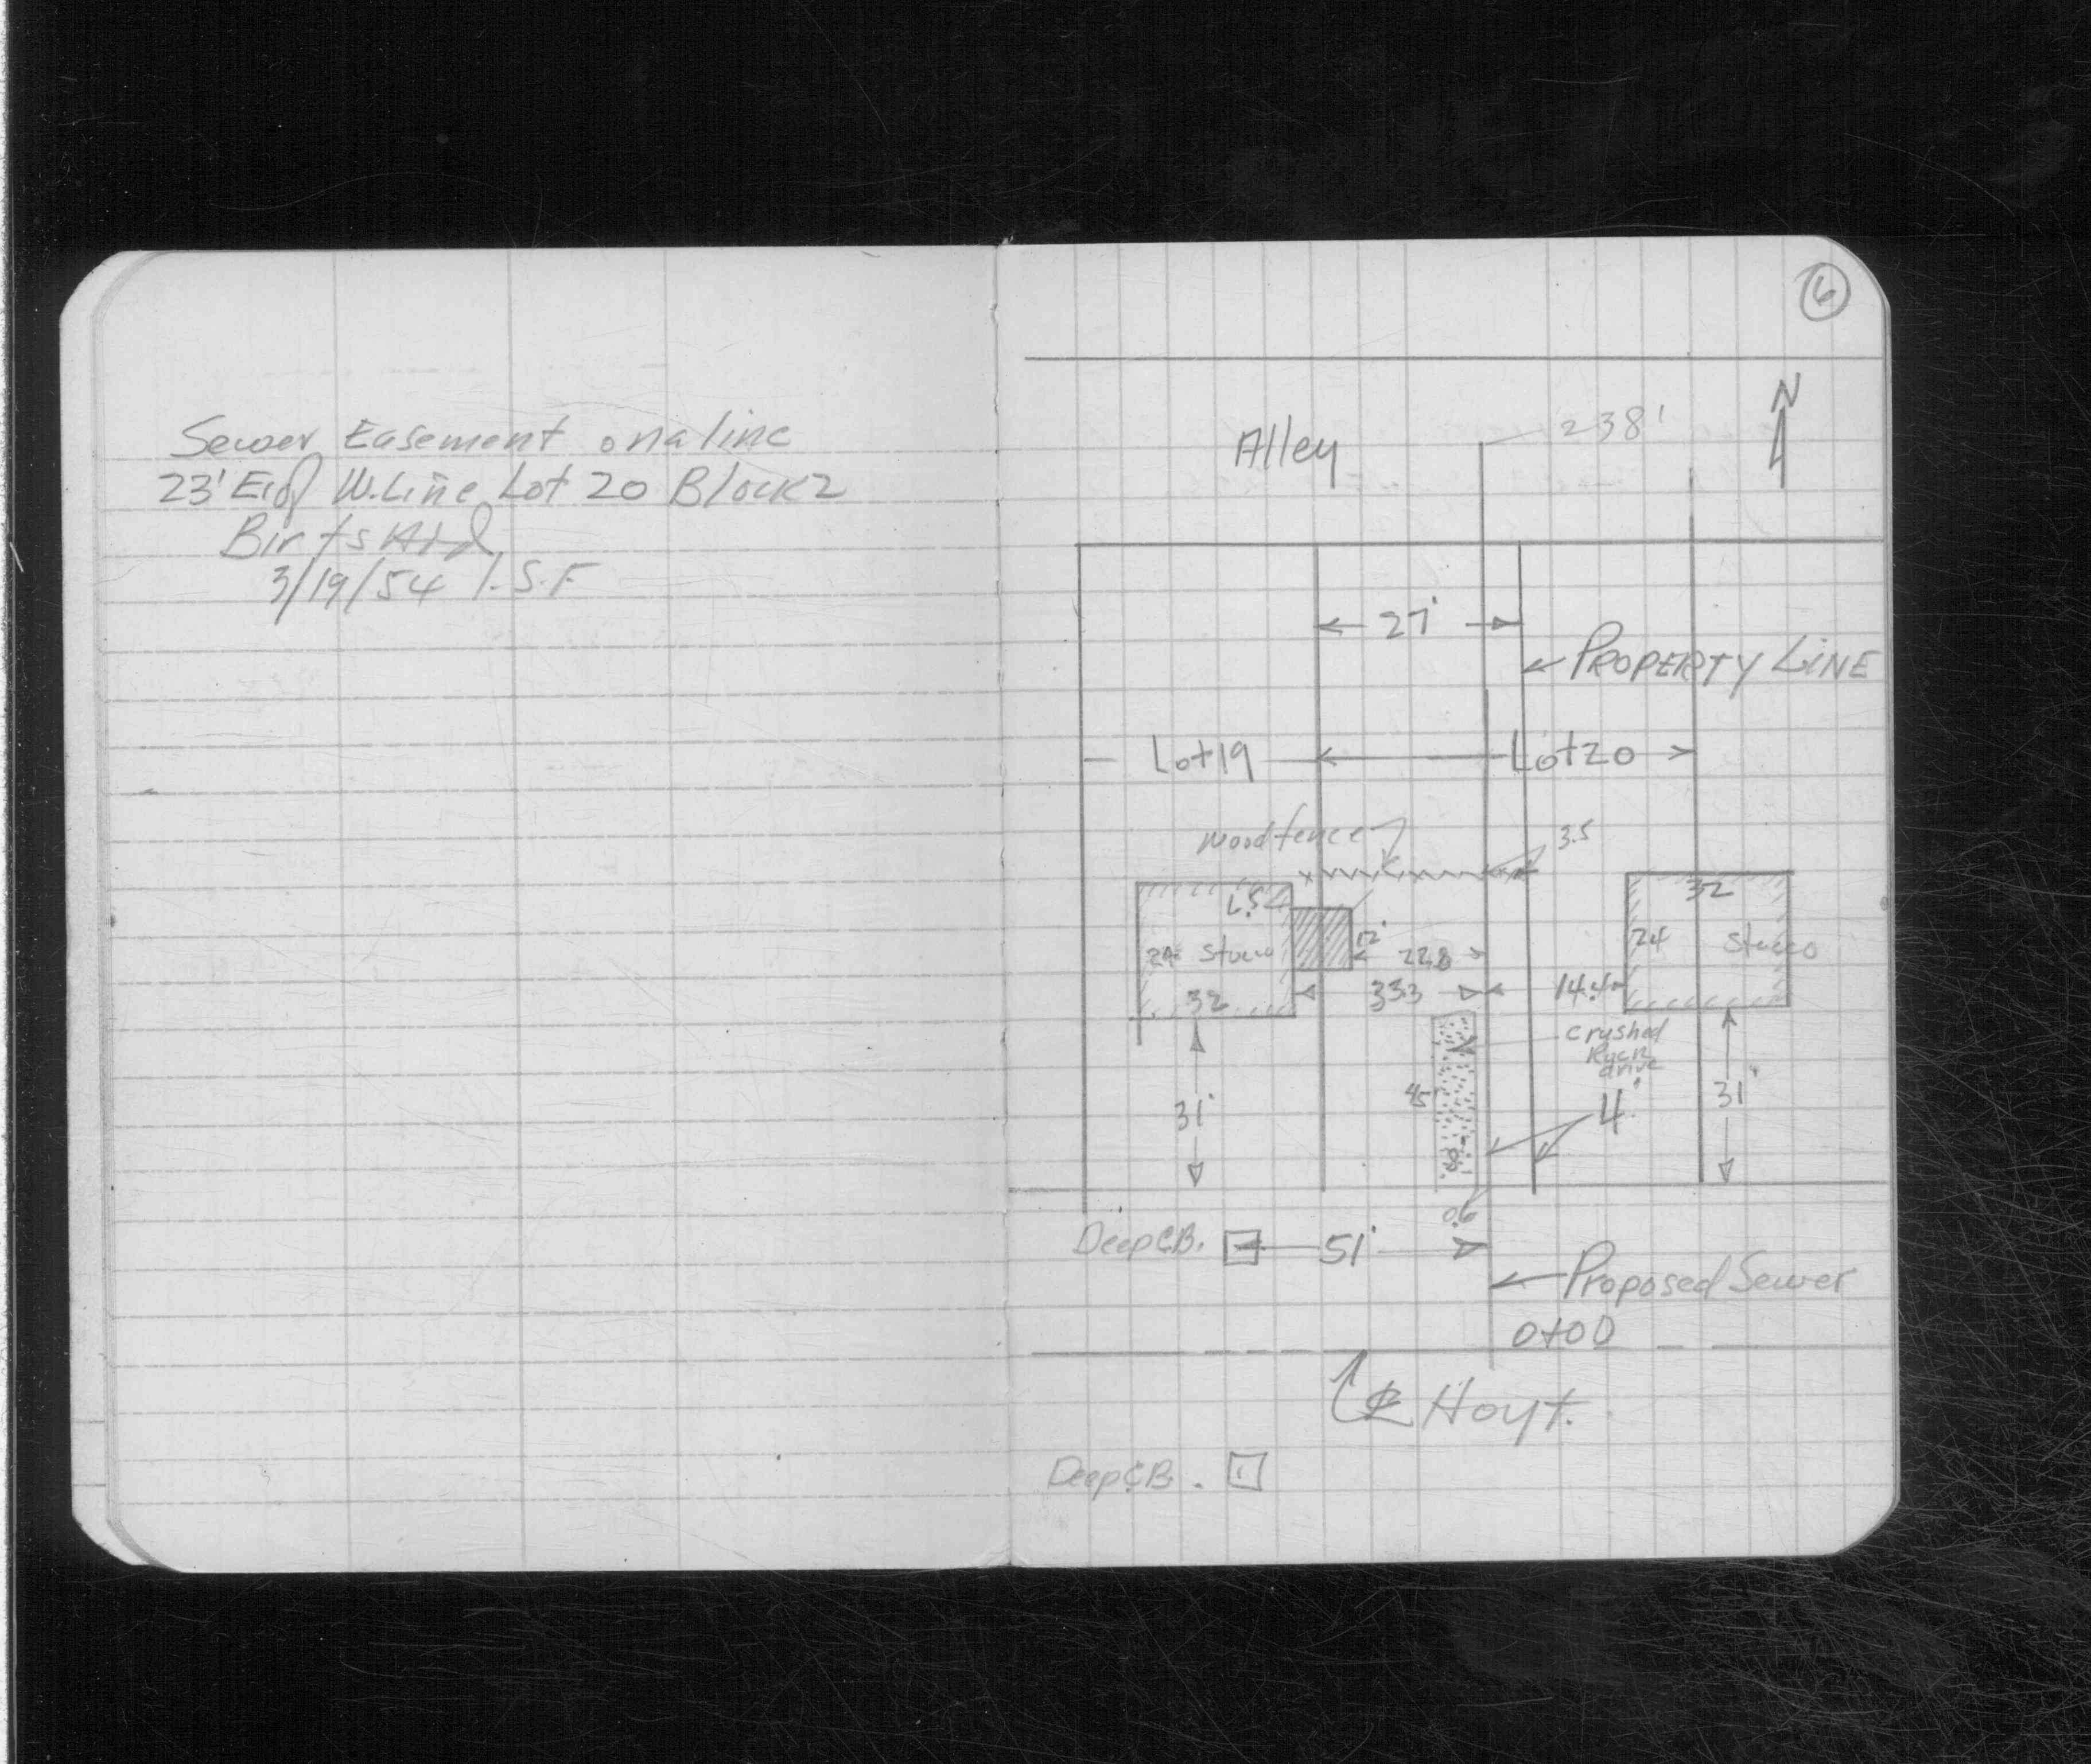 Sewer Easement on a line
23' E. of W. Line Lot 20 Block 2
3/19/54 I.S.F
6
N
238'
Alley
27'
PROPERTY LINE
Lot 19
Lot 20
Wood fence
3.5
32
12'
24 Stucco
22.8
24
Stucco
32
33.3
14.4
crushed
Rock
drive
45
4'
31'
31'
0.6
Deep C.B.
51'
Proposed Sewer
0+00
℄ Hoyt.
Deep C.B.